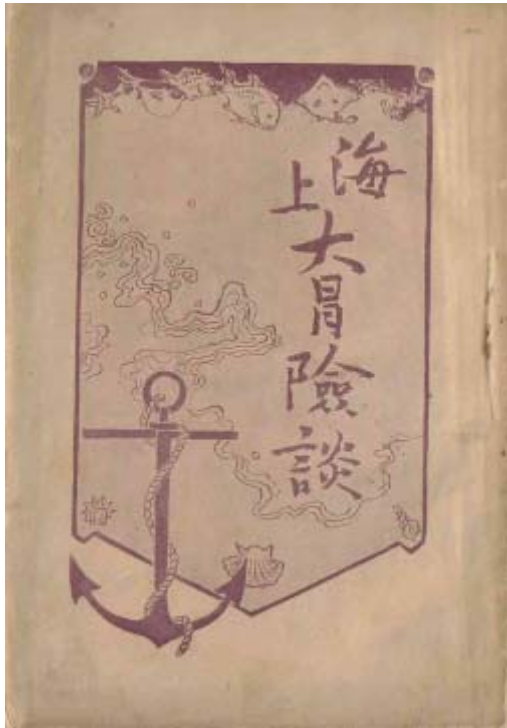 海上大冒險談